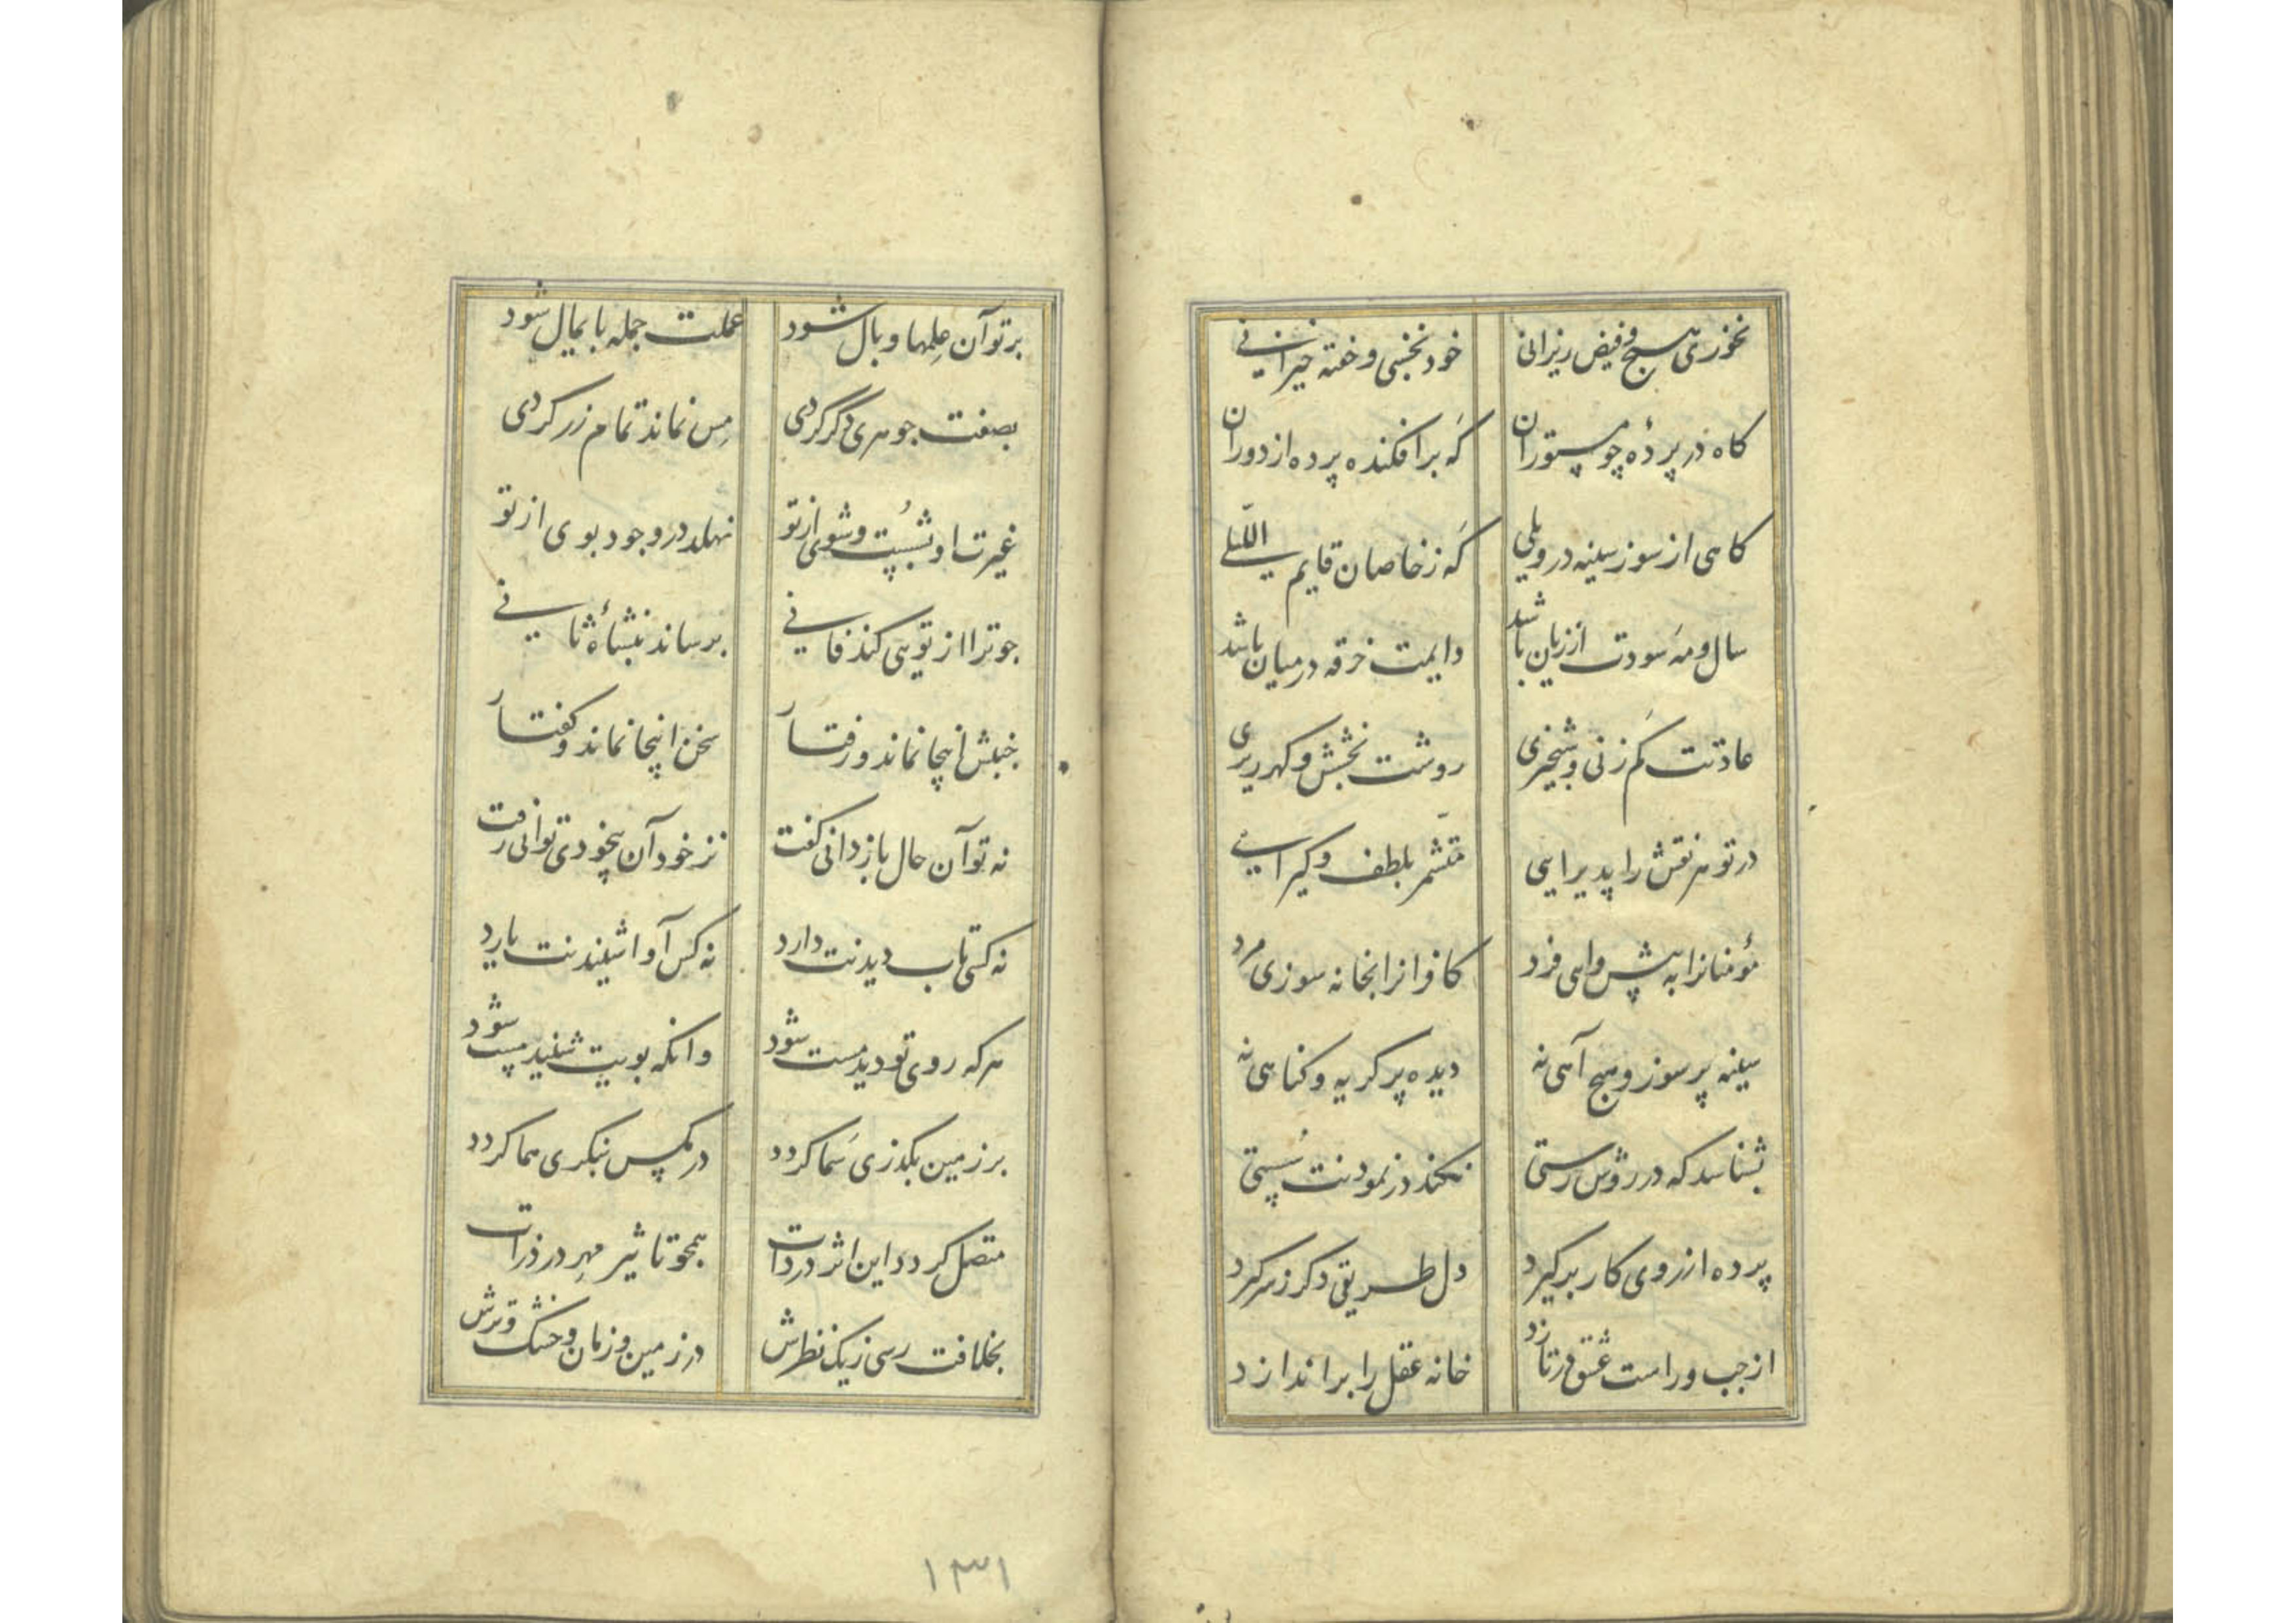 نخوری هیچ و فیض ریزانی
خود نخسبی و خفته خیزانی
کاه در پردهٔ چو مستوران
که برافکنده پرده از دوران
کاهی از سوز سینه در ویلی
که ز خاصان قایم اللیلی
سال و مه سودت از زیان باشد
دایمت خرقه در میان باشد
عادتت کم زنی و شبخیزی
روشت بخشش و کهرریزی
در تو هر نقش را پدیرایی
متشمر بلطف و کیرایی
مؤمنانرا به پیش واهی فرد
کافرانرا بخانه سوزی مرد
سینه پر سوز و هیچ آهی نه
دیده پر کریه و کناهی نه
بشناسد که در روش رستی
نکند در نمودنت سستی
پرده از روی کار برکیرد
دل طریقی دکر ز سر کیرد
از چپ و راست عشق در تازد
خانه عقل را براندازد
بر تو آن علمها وبال شود
عملت جمله پایمال شود
بصفت جوهری دگر گردی
مس نماند تمام زر کردی
غیرت او بشست و شوی از تو
نهلد در وجود بوی از تو
چو ترا از تویی کند فانی
برساند بنشأهٔ ثانی
جنبش اینجا نماند و رفتار
سخن اینجا نماند و کفتار
نه تو آن حال باز دانی کفت
نز خود آن بیخودی توانی رفت
نه کسی تاب دیدنت دارد
نه کس آوا شنیدنت یارد
هر که روی تو دید مست شود
وانکه بویت شنید پست شود
بر زمین بکذری سما کردد
در مکس بنکری هما کردد
متصل کردد این اثر در ذات
همچو تاثیر مهر در ذرات
بخلافت رسی ز یک نظرش
در زمین و زمان و خشک و ترش
۱۳۱